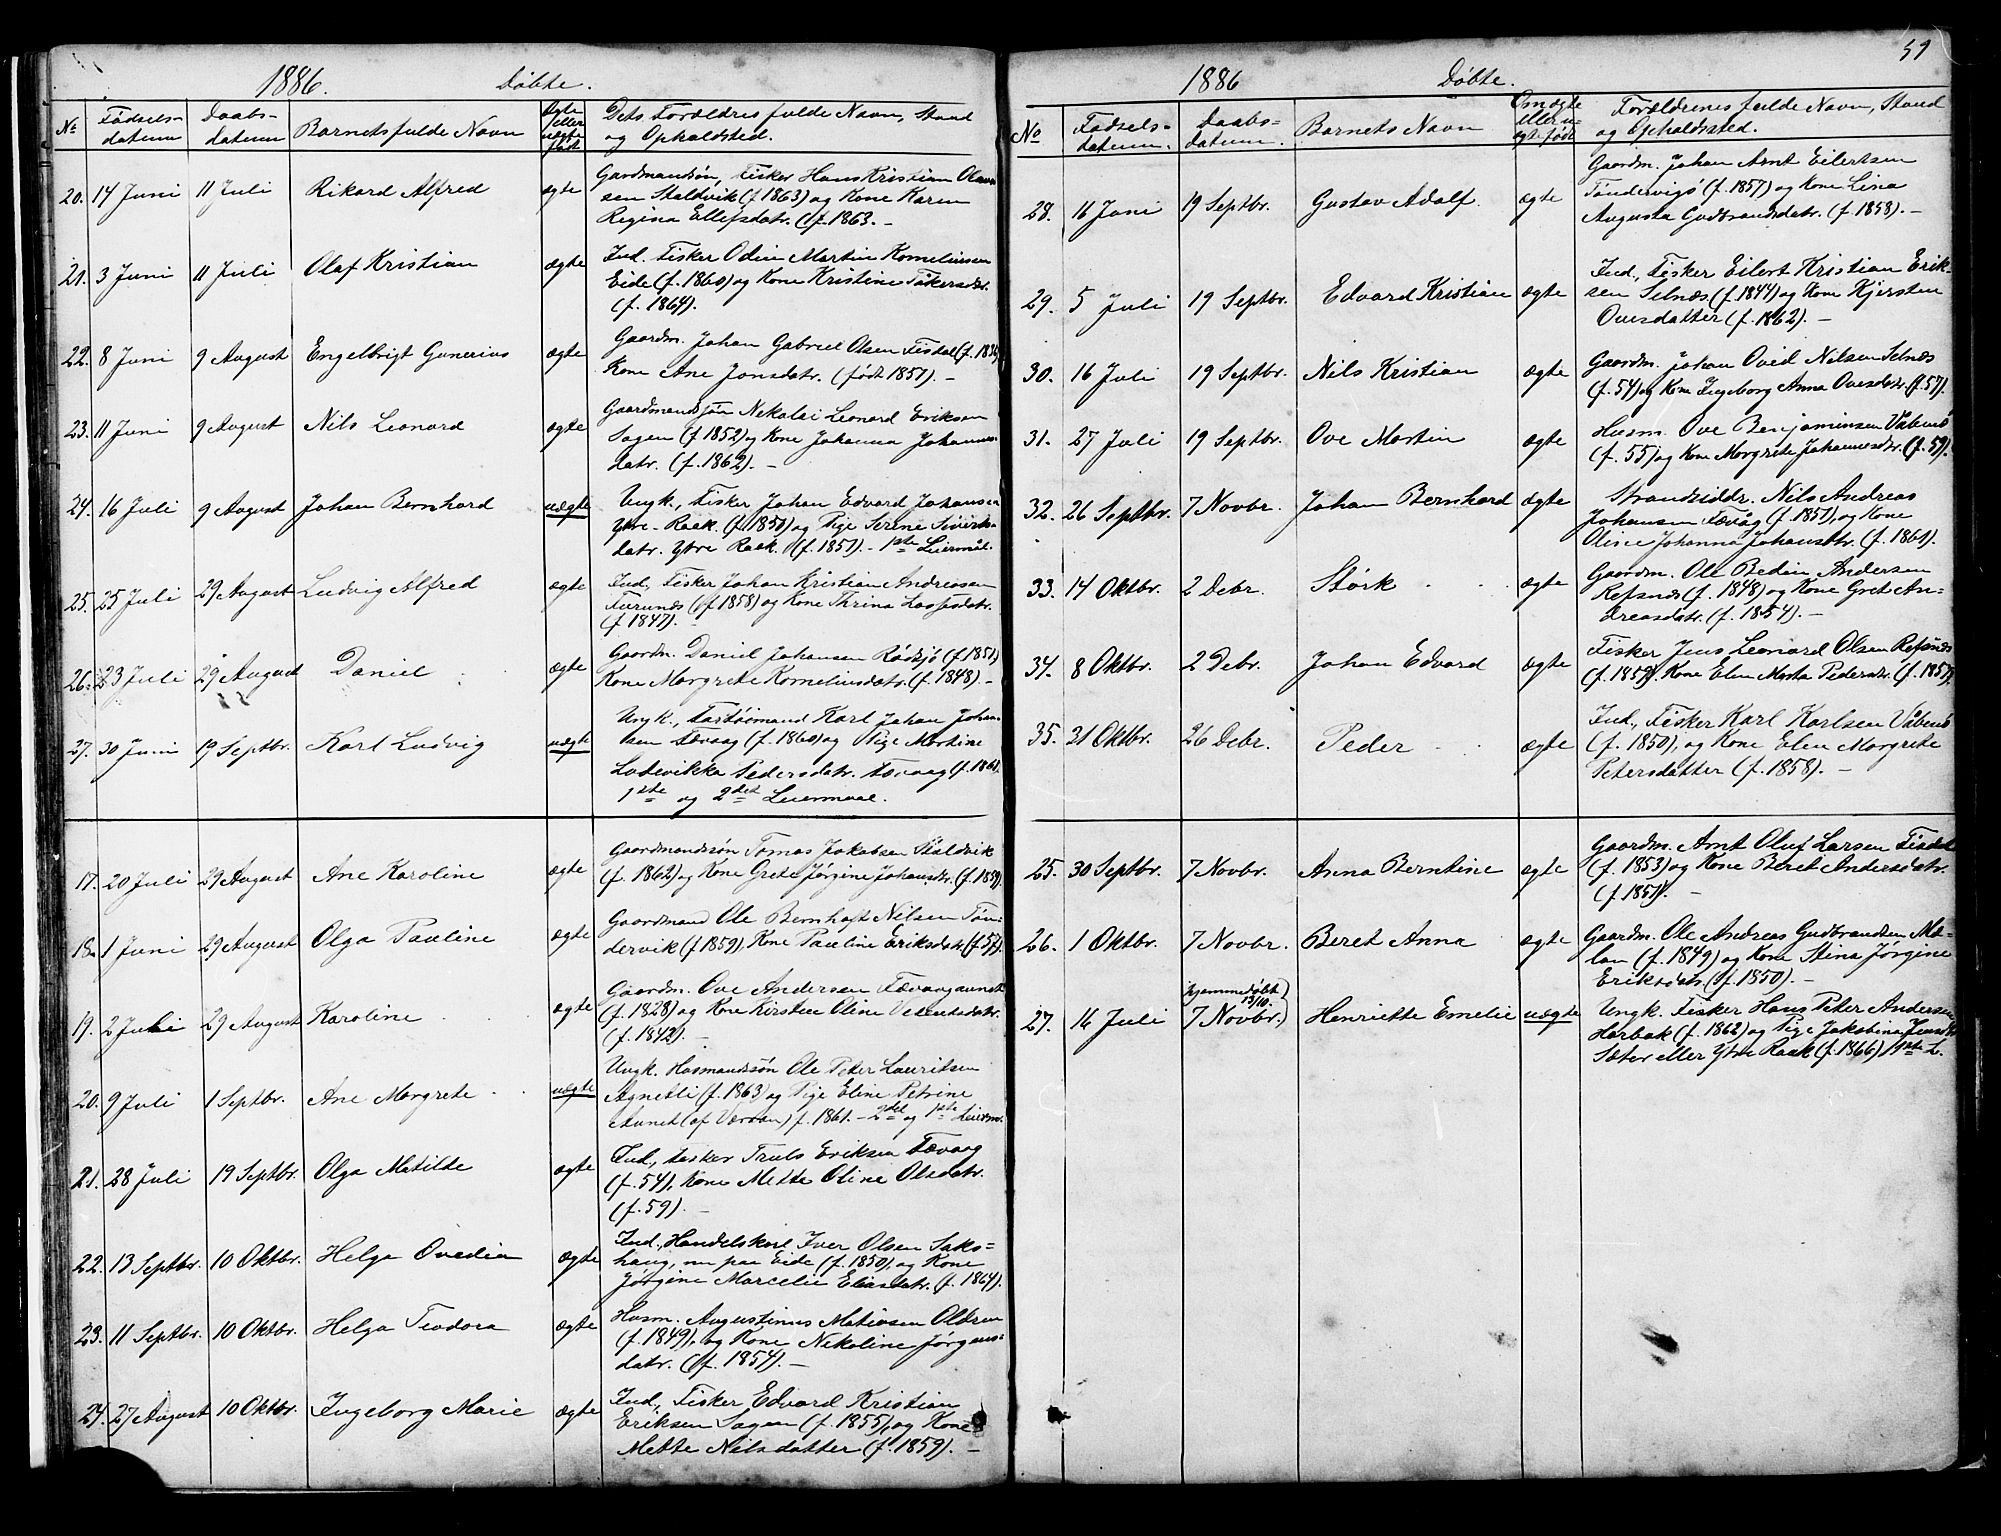 1886. Døbte.
No Fødsels-datum Daabs-datum Barnets fulde Navn Ægte eller uægte født Dets Forældres fulde Navn, Stand og Opholdsted.
20. 14 Juni 11 Juli Rikard Alfred ægte Gaardmandsøn, Fisker Hans Kristian Olaus-
sen Staldvik (f. 1863) og Kone Karen
Regina Ellefsdatr. (f. 1863. —
21. 3 Juni 11 Juli Olaf Kristian ægte Ind. Fisker Odin Martin Korneliusen
Eide (f. 1860) og Kone Kristine
(f. 1864).
22. 8 Juni 9 August Engelbrigt Gunerius ægte Gaardm. Johan Gabriel Olsen Tisdal
Kone Ane Jonsdatr. (født 1851). —
23. 11 Juni 9 August Nils Leonard ægte Gaardmandsøn Nekolai Leonard Eriksen
Sagen (f. 1852) og Kone Johanna Johannes-
datr. (f. 1862). —
24. 16 Juli 9 August Johan Bernhard uægte Ungk., Fisker Johan Edvard Johansen
Ytre-Raak. (f. 1850) og Pige Serine Siverts-
datr. Ytre Raak. (f. 1851). — 1ste Leiermål.
25. 25 Juli 29 August Ludvig Alfred ægte Ind., Fisker Johan Kristian Andreasen
Furunes (f. 1858) og Kone Thrina Lassesdatr.
(f. 1847). —
26. 23 Juli 29 August Daniel ægte Gaardm. Daniel Johansen Rødsjø (f 1851)
Kone Margrete Korneliusdatr. (f. 1848). —
27. 30 Juni 19 Septbr. Karl Ludvig uægte Ungk., Karl Johan Johan-
sen Fævaag (f. 1860) og Pige Martine
Lodevikka Pedersdatr. Fævaag (f. 1861.
1ste og 2det Leiermaal.
17. 20 Juli 29 August Ane Karoline ægte Gaardmandssøn Tomas Jakobsen Staldvik
(f. 1862) og Kone Grete Jørgine Johansdr. (f. 1859).
18. 1 Juni 29 August Olga Pauline ægte Gaardmand Ole Bernhoft Nilsen Tøn-
dervik (f. 1859). Kone Pauline Eriksdatr. (f. 57).
19. 2 Juli 29 August Karoline ægte Gaardm. Ove Andersen Fævaagavnet
(f. 1828) og Kone Kirstine Oline
(f. 1842). —
20. 9 Juli 1 Septbr. Ane Margrete uægte Ungk. Husmandssøn Ole Peter Lauritsen
Agnetli (f. 1863) og Pige Eline Petrine
Aunet (af Værran) f. 1861. — 2det og 1ste Leierm.
21. 28 Juli 19 Septbr. Olga Matilde ægte Ind., Fisker Truls Eriksen Fævaag
(f. 54), Kone Mette Oline Olsdatr.
(f. 59). —
22. 13 Septbr. 10 Oktbr. Helga Ovedia ægte Ind., Handelskarl Iver Olsen Saks=
haug, nu paa Eide (f. 1850), og Kone
Jørgine Marcelie Eliasdatr. (f. 1864).
23. 11 Septbr. 10 Oktbr. Helga Teodora ægte Husm. Augustinus Matiasen Oldren
(f. 1849), og Kone Nikoline Jørgens=
datr. (f. 1854). —
24. 27 August 10 Oktbr. Ingeborg Marie ægte Ind., Fisker Edvard Kristian
Eriksen Sagen (f. 1855), og Kone
Mette Nilsdatter (f. 1859). —
59
1886 Døbte.
No Fødsels-datum. Daabs-datum. Barnets Navn Om ægte eller u-ægte født Forældrenes fulde Navn, Stand og Opholdssted.
28. 16 Juni 19 Septbr. Gustav Adolf. ægte Gaardm. Johan Arnt Eilertsen
Tøndervigø (f. 1857) og Kone Lina
Augusta Gudbrandsdatr. (f. 1858). —
29. 5 Juli 19 Septbr. Edvard Kristian ægte Ind., Fisker Eilert Kristian Erik-
sen Selnæs (f. 1844) og Kone Kjersten
Ovesdatter (f. 1862). —
30. 16 Juli 19 Septbr. Nils Kristian ægte Gaardm. Johan Ovid Nilsen Selnæs
(f. 54) og Kone Ingeborg Anna Ovesdatr. (f. 57).
31. 27 Juli 19 Septbr. Ove Martin ægte Husm. Ove Benjaminsen Våbensö
(f. 55) og Kone Margrete Johannesdtr. (f. 59).
32. 26 Septbr. 7 Novbr. Johan Bernhard ægte Strandsiddr. Nils Andreas
Johansen Fævåg (f. 1851), og Kone
Olise Johanna Johansdtr. (f. 1861).
33. 14 Oktbr. 2 Debr. Størk ægte Gaardm. Ole Bedin Andersen
Refsnes (f. 1848) og Kone Gret An-
dreasdatr. (f. 1854). —
34. 8 Oktbr. 2 Debr. Johan Edvard ægte Fisker Jens Leonard Olsen Refsnæs
(f. 1859). Kone Elen Marta Pedersdr. (f. 1857).
35. 31 Oktbr. 26 Debr. Peder ægte Ind., Fisker Karl Karlsen Våbensö
(f. 1850), og Kone Elen Margrete
Petersdatter (f. 1858). —
25. 30 Septbr. 7 Novbr. Anna Berntine ægte Gaardm. Arnt Oluf Larsen Tisdal
(f. 1853) og Kone Beret Andersdatr.
(f. 1851). —
26. 1 Oktbr. 7 Novbr. Beret Anna ægte Gaardm. Ole Andreas Gudbrandsen Mæ-
lan (f. 1849) og Kone Stina Jørgine
Eriksdatr. (f. 1850). —
27. 16 Juli hjemmedøbt 13/10. 7 Novbr. Henriette Emelie uægte Ungk. Fisker Hans Peter Andersen
Harbak (f. 1862) og Pige Jakobina
Sæter eller Ytre Raak (f. 1866) 1ste L.